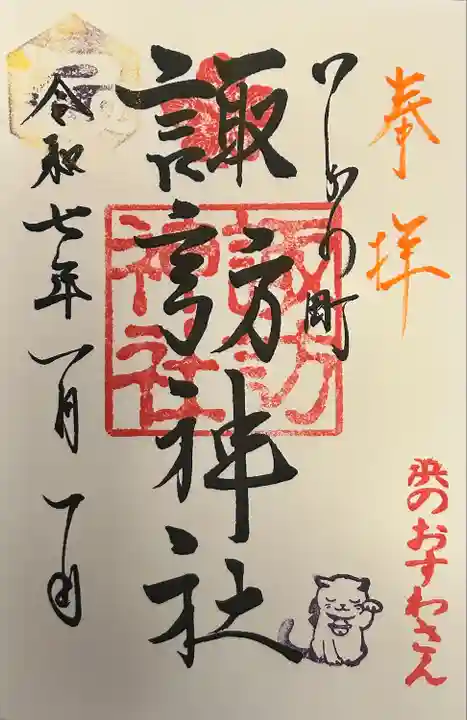 奉拝
町
諏訪神社
諏訪神社
令和七年一月一日
浜のおすわさん